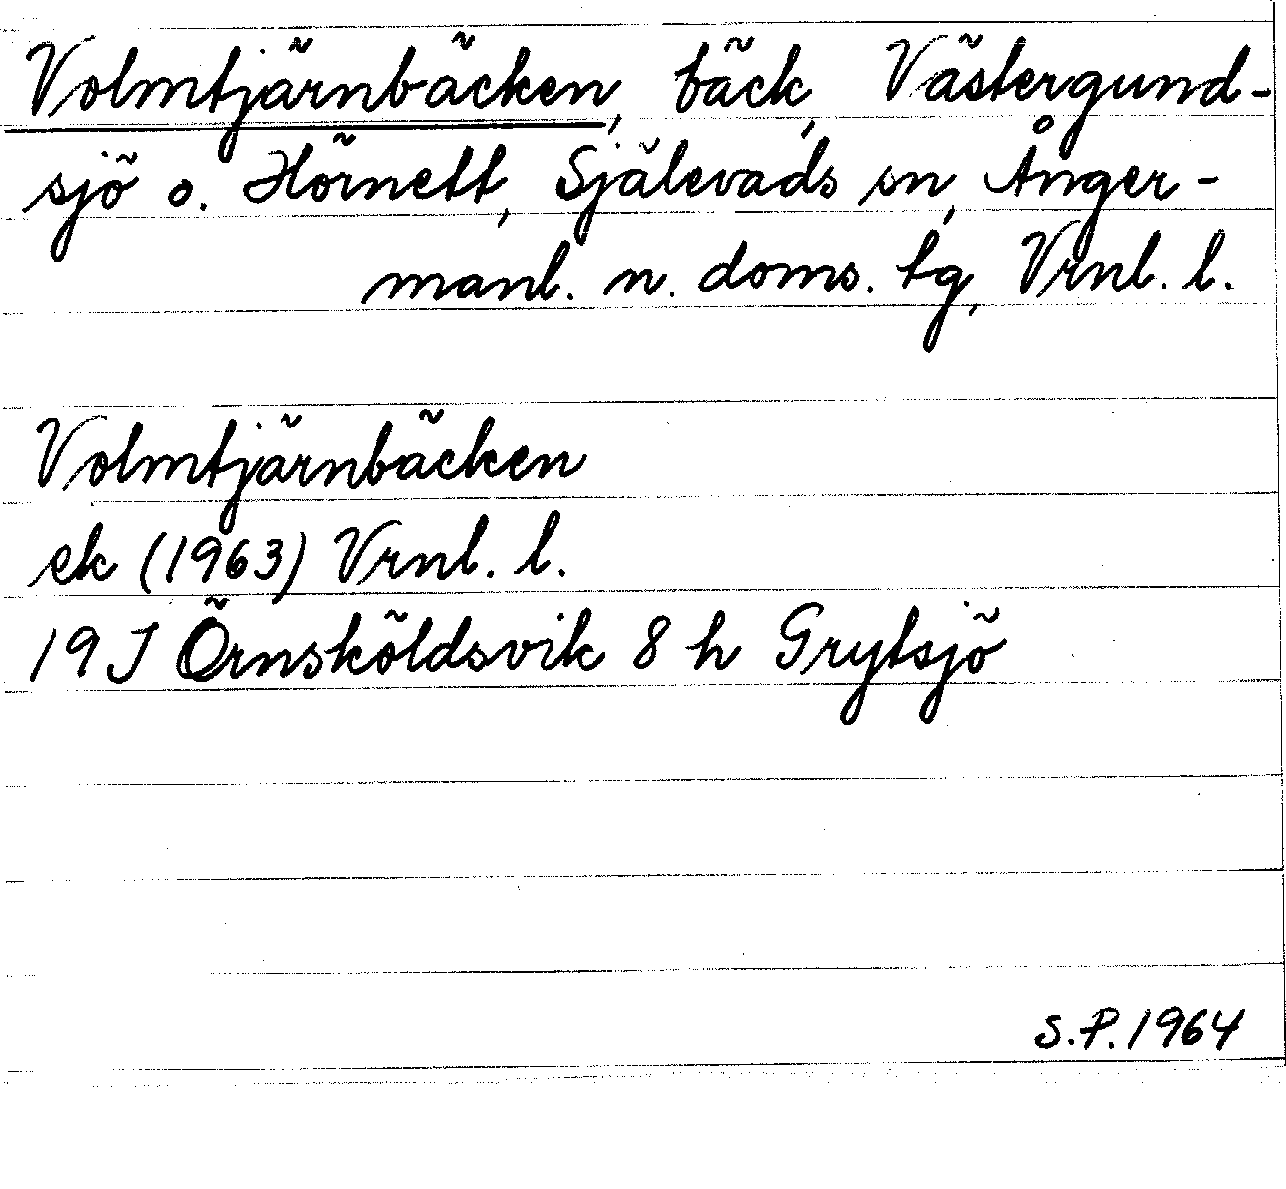 Volmtjärnbäcken, bäck, Västergund-
sjö o. Hörnett, Själevads sn, Ånger-
manl. n. doms. tg, Vrnl. l.
Volmtjärnbäcken
ek (1963) Vrnl. l.
19 J Örnsköldsvik 8 h Grytsjö
S.P. 1964